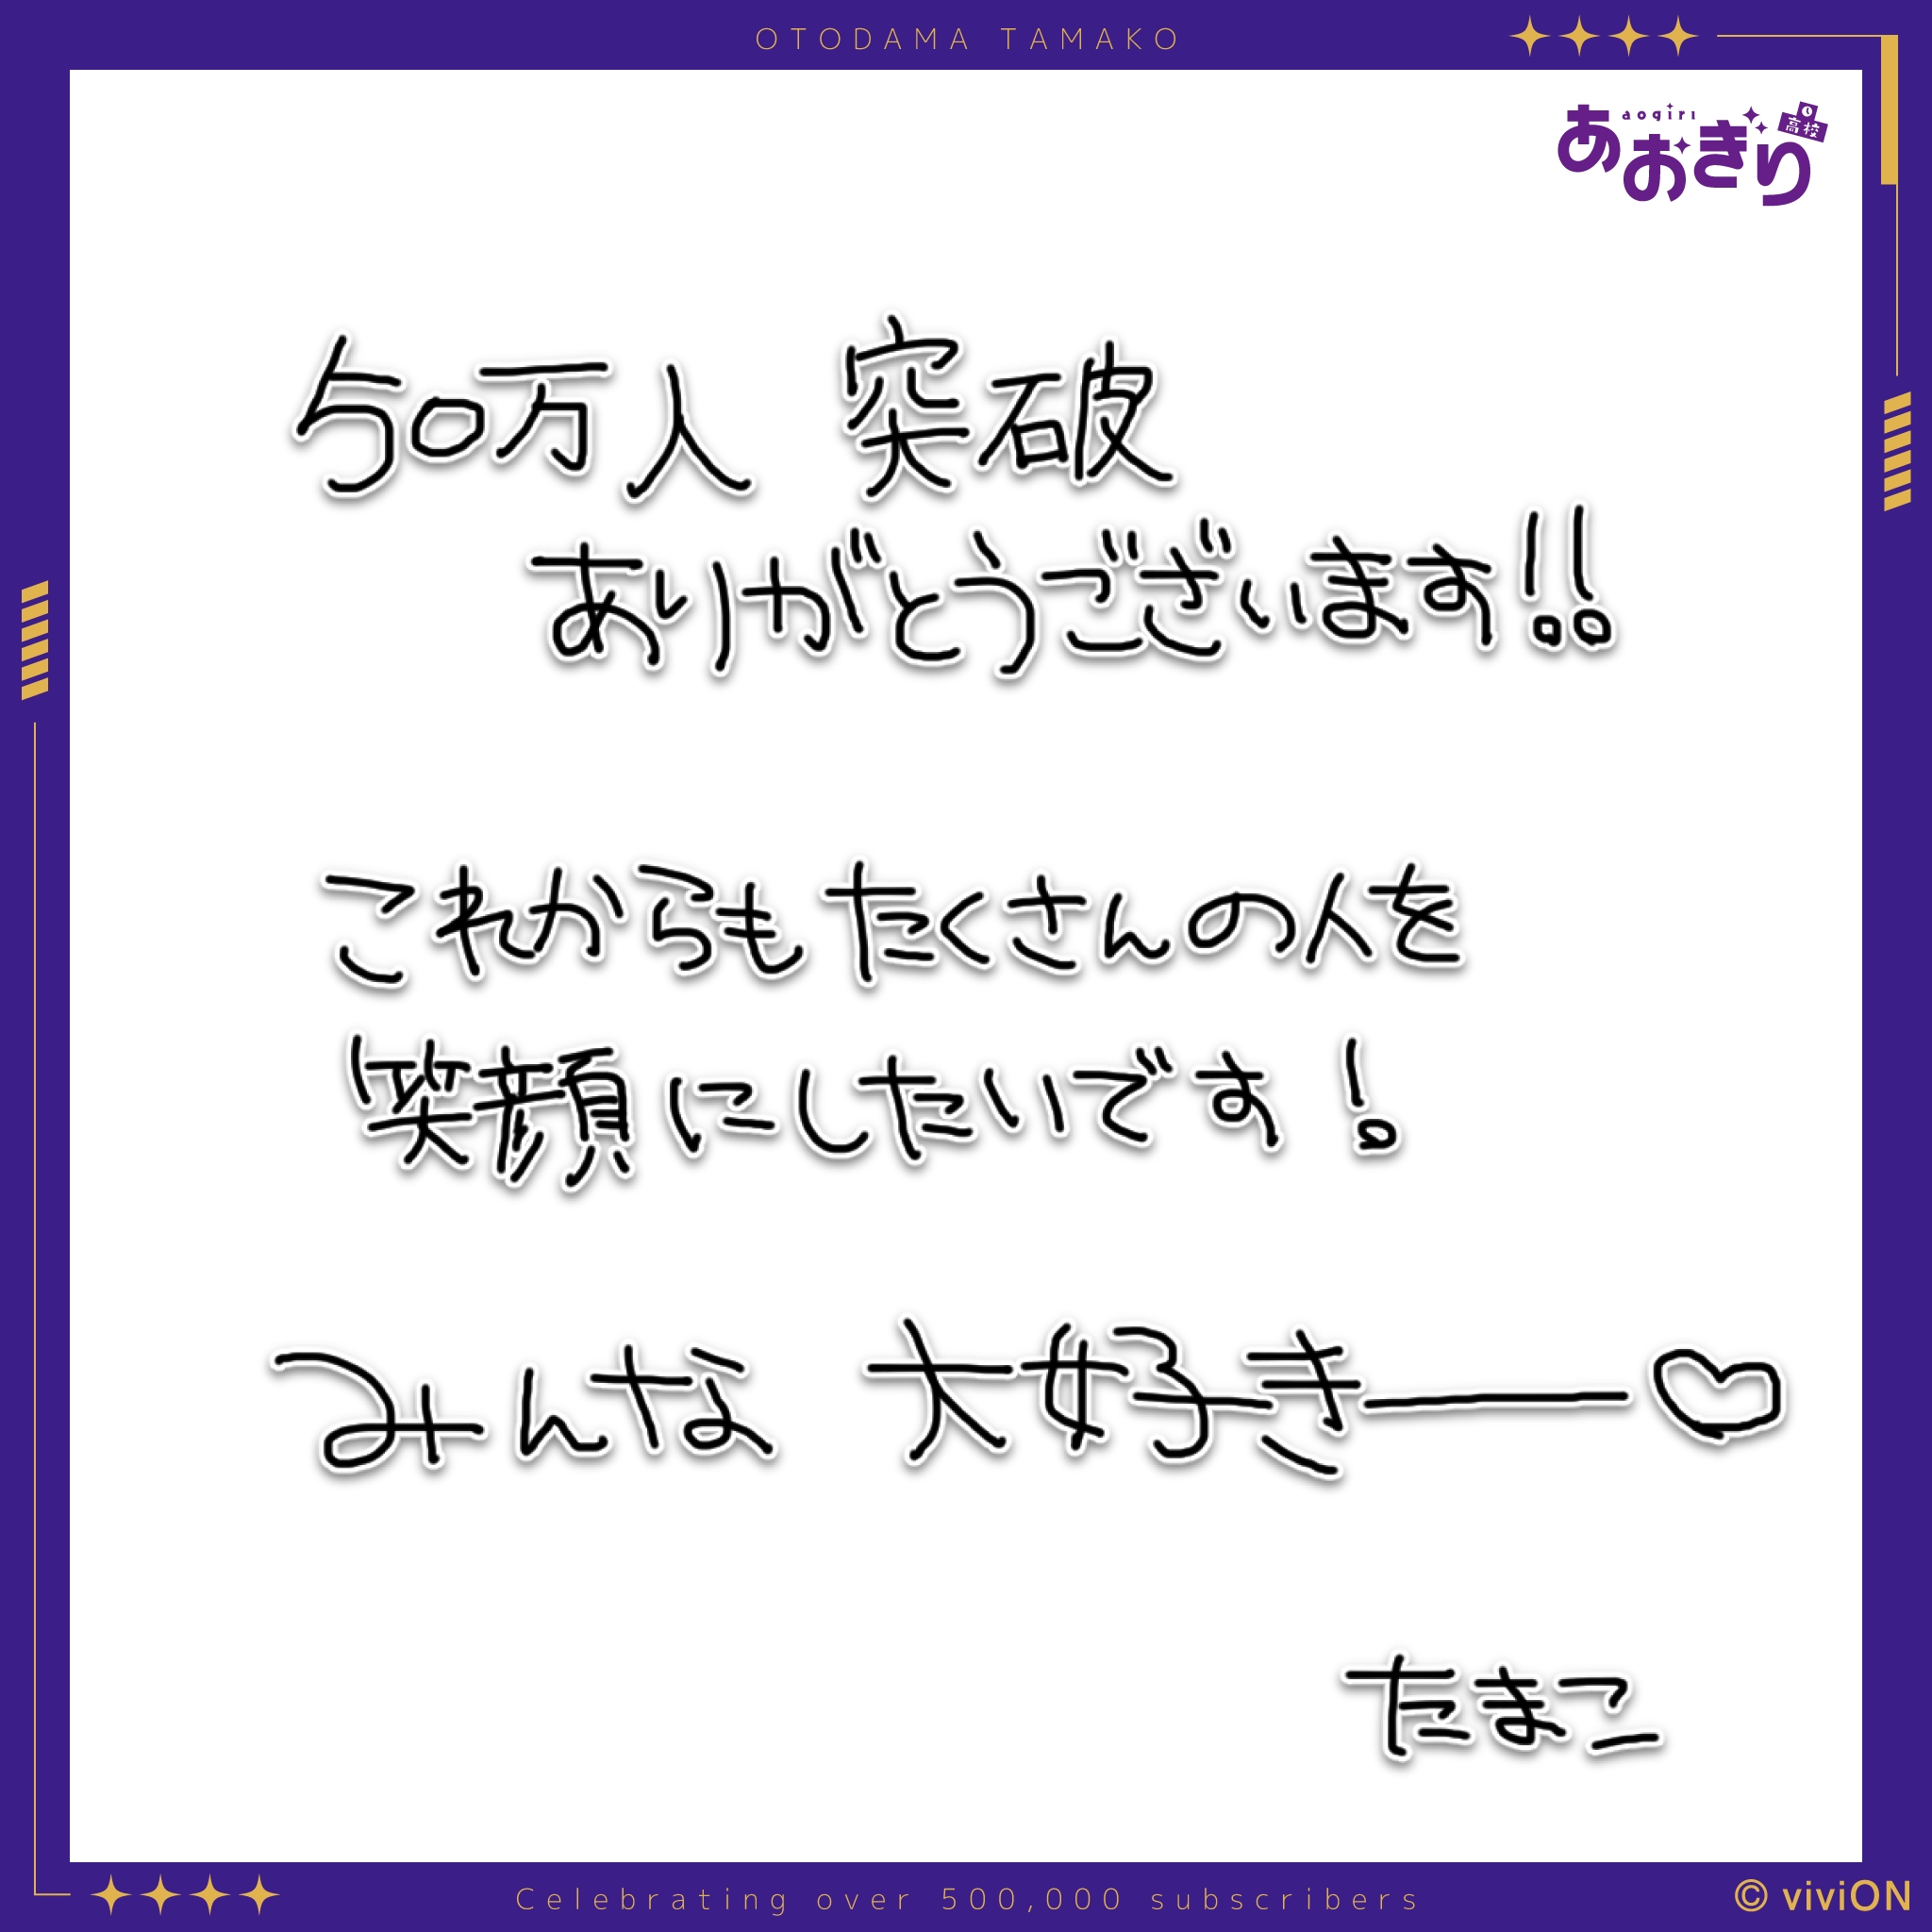 OTODAMA TAMAKO
aogiri
あおぎり高校
50万人 突破
ありがとうございます!!
これからもたくさんの人を
笑顔にしたいです!
みんな 大好きー♡
たまこ
Celebrating over 500,000 subscribers
© viviON